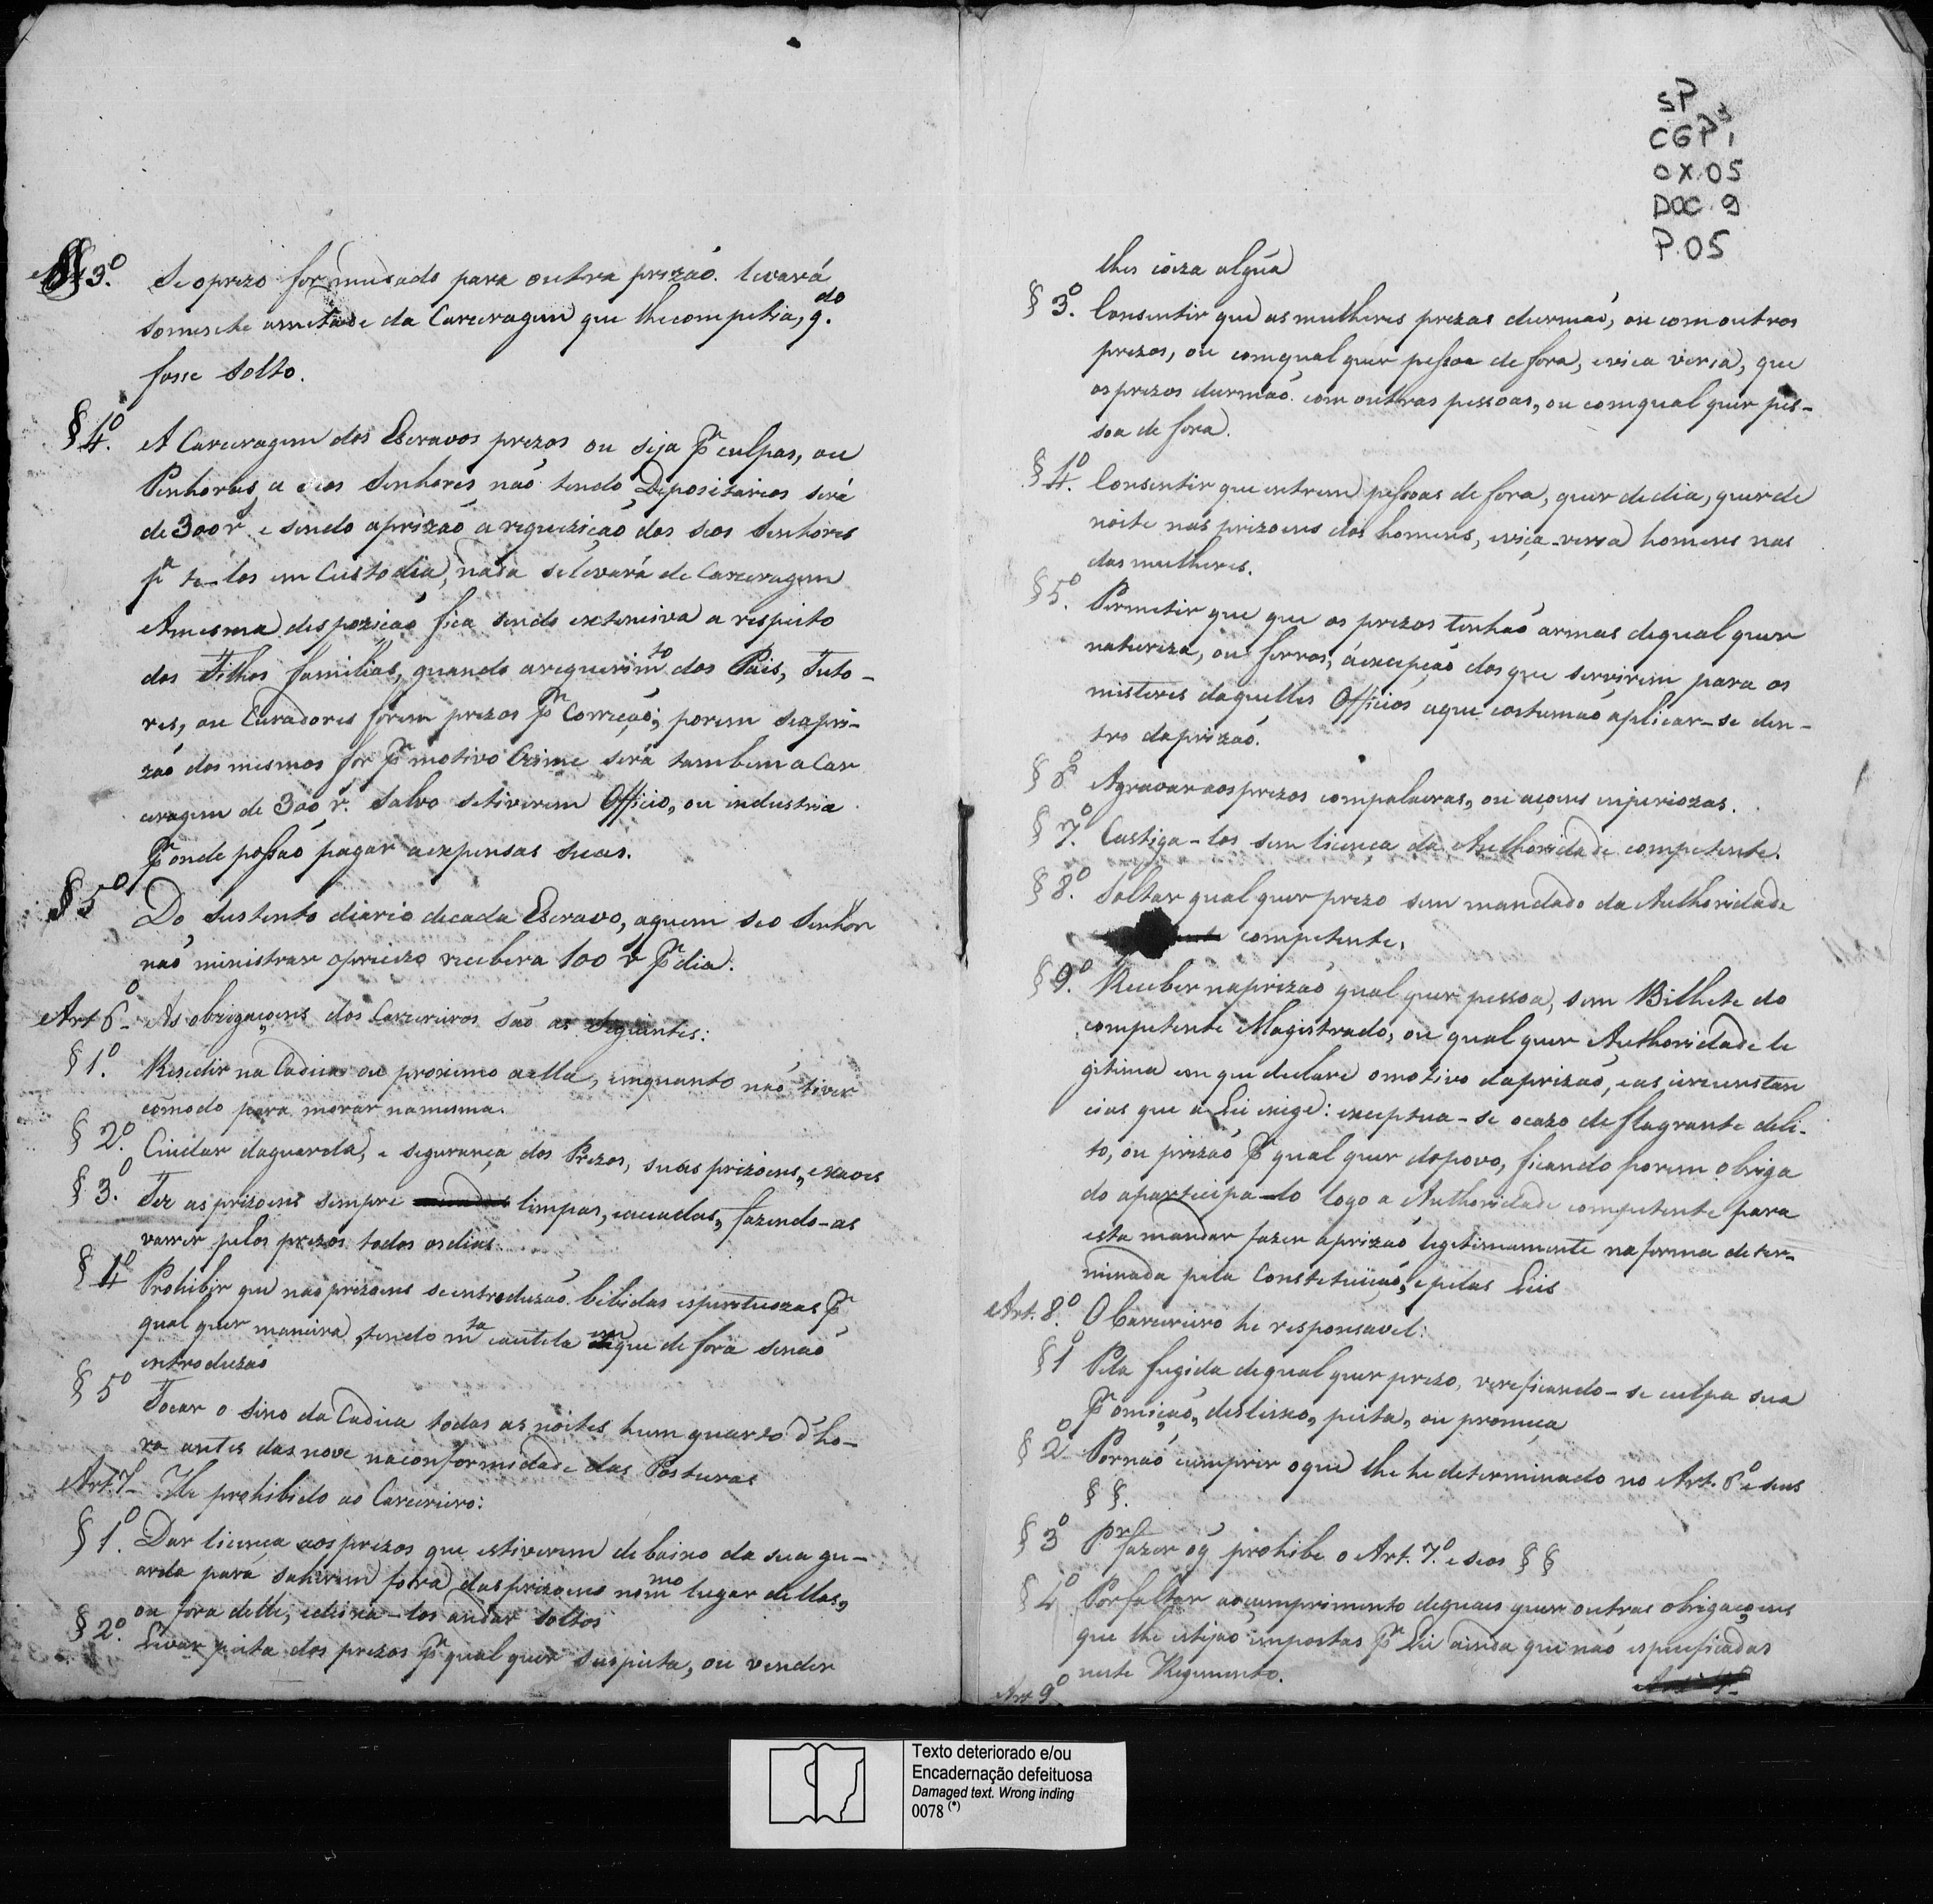 § 3.º Se oprezo for mudado para outra prizaõ. levará
somente ametade da Carceragem que lhecompetia, q.do
fosse solto.
§ 4.º A Carceragem dos Escravos prezos ou seja pr culpas, ou
Penhoras a seos Senhores naõ tendo Depositarios será
de 300 r. e sendo aprizaõ a requiziçaõ dos seos Senhores
pr te-los em Custodia, nada selevará de Carceragem
Amesma dispoziçaõ fica sendo extenciva a respeito
dos Filhos familias, quando arequerimto dos Pais, Tuto-
res, ou Curadores forem prezos pr Correçaõ; porem seapri-
zaõ dos mesmos for pr motivo Crime será tambem aCar
ceragem de 300 r. salvo setiverem Officio, ou industria
pr onde possaõ pagar aexpensas suas.
§ 5º Do sustento diario decada Escravo, aquem seo Senhor
naõ ministrar oprecizo recebera 100 r pr dia.
Art 6º - As obrigaçoens dos Carcereiros saõ as seguintes:
§ 1.º Residir na Cadeia ou proximo aella, emquanto naõ tiver
comodo para morar namesma.
§ 2.º Cuidar daguarda, e segurança dos Prezos, suas prizoens, exaves
§ 3.º Ter as prizoens sempre limpas, eaceadas, fazendo-as
varrer pelos prezos todos osdias
§ 4º Prohibir que nas prizoens seintroduzaõ bebidas espirituozas pr
qual quer maneira, tendo mta cautela em que de fora senaõ
introduzaõ
§ 5º Tocar o sino da Cadeia todas as noites hum quarto d'ho-
ra antes das nove naconformidade das Posturas
Art. 7º - He prohibido ao Carcereiro:
§ 1.º Dar licença aos prezos que estiverem debaixo da sua gu-
arda para sahirem fora dasprizoens nomo lugar dellas,
ou fora delle, edeixa-los andar soltos
§ 2.º Levar peita dos prezos pr qual quer suspeita, ou vender
SP
CGP3 1
CX.05
DOC.9
P.05
lhes coiza algũa
§ 3.º Consentir que asmulheres prezas durmaõ, ou comoutros
prezos, ou comqualquer pessoa de fora, evica versa, que
osprezos durmaõ com outras pessoas, ou comqual quer pes-
soa de fora.
§ 4.º Consentir que entrem pessoas de fora, quer dedia, querde
noite nas prizoens dos homens, eviça-versa homens nas
das mulheres.
§ 5.º Permetir que que os prezos tenhaõ armas dequal quer
natureza, ou ferros, áexcepçaõ dosque servirem para os
misteres daquelles Officios aque costumaõ aplicar-se den-
tro daprizaõ.
§ 6º Agravar aosprezos compalavras, ou açoens injuriozas.
§ 7.º Castiga-los sem licença da Authoridade competente.
§ 8.º Soltar qual quer prezo sem mandado da Authoridade
competente.
§ 9.º Receber naprizaõ qual quer pessoa, sem Bilhete do
competente Magistrado, ou qual quer Authoridade le
gitima em que declare omotivo daprizaõ, eas circunstan
cias que a Lei exige: exceptua-se ocazo de flagrante deli-
to, ou prizaõ pr qual quer dopovo, ficando porem obriga
do aparticipa-lo logo a Authoridade competente para
esta mandar fazer aprizaõ legitimamente naforma deter-
minada pela Constetuiçaõ, epelas Leis
Art. 8.º O Carcereiro he responsavel:
§ 1º Pela fugida dequal quer prezo, vereficando-se culpa sua
pr omiçaõ, desleixo, peita, ou promeça
§ 2º Pornaõ cumprir oque lhe hedeterminado no Art. 6º e seus
§ §.
§ 3º Pr fazer oq̃ prohibe o Art. 7.º e seos § §
§ 4º Porfaltar aocumprimento dequaes quer outras obrigaçoens
que lhe estejaõ impostas pr Lei ainda que naõ especificadas
neste Regimento.
Art 9º
Texto deteriorado e/ou
Encadernação defeituosa
Damaged text. Wrong inding
0078 (*)